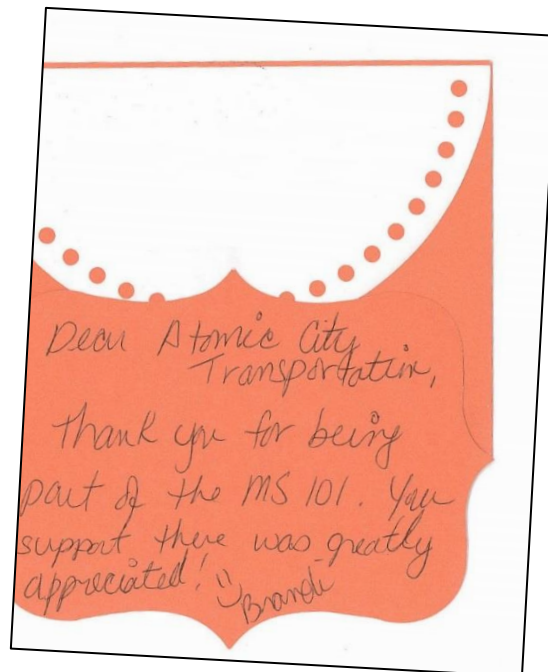 Dear Atomic City
Transportation,
Thank you for being
part of the MS 101. You
support there was greatly
appreciated! :)
Brandi